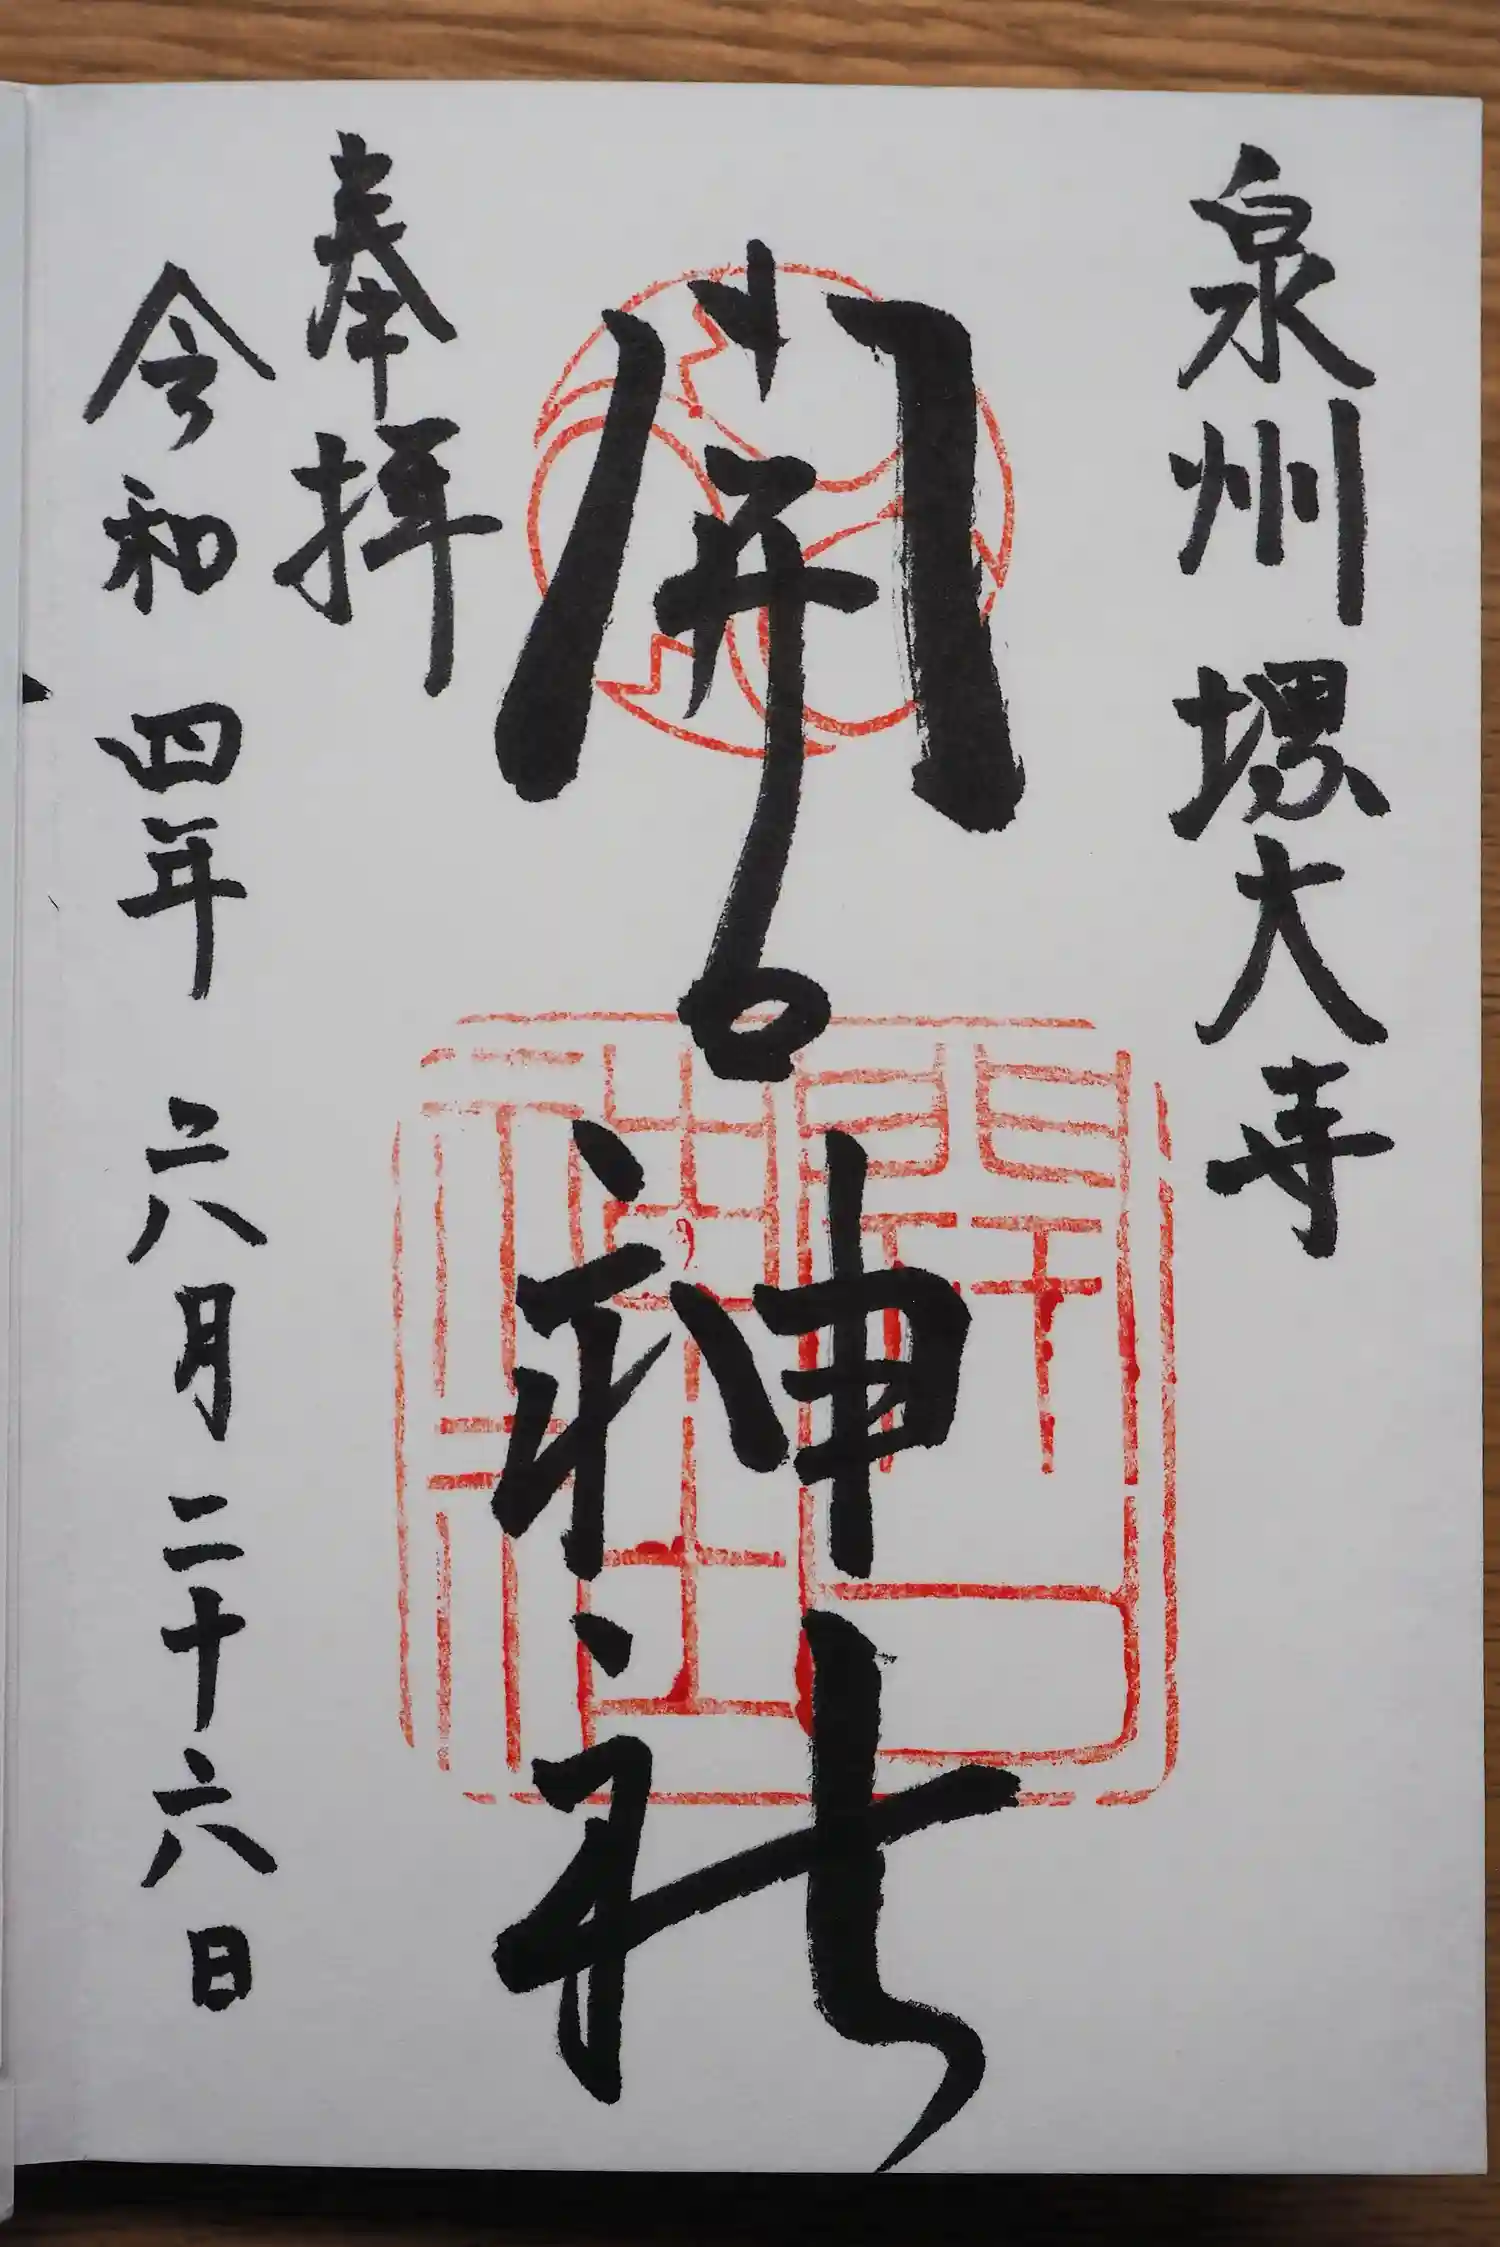 泉州堺大寺
開口神社
奉拝
令和四年六月二十六日
開口神社